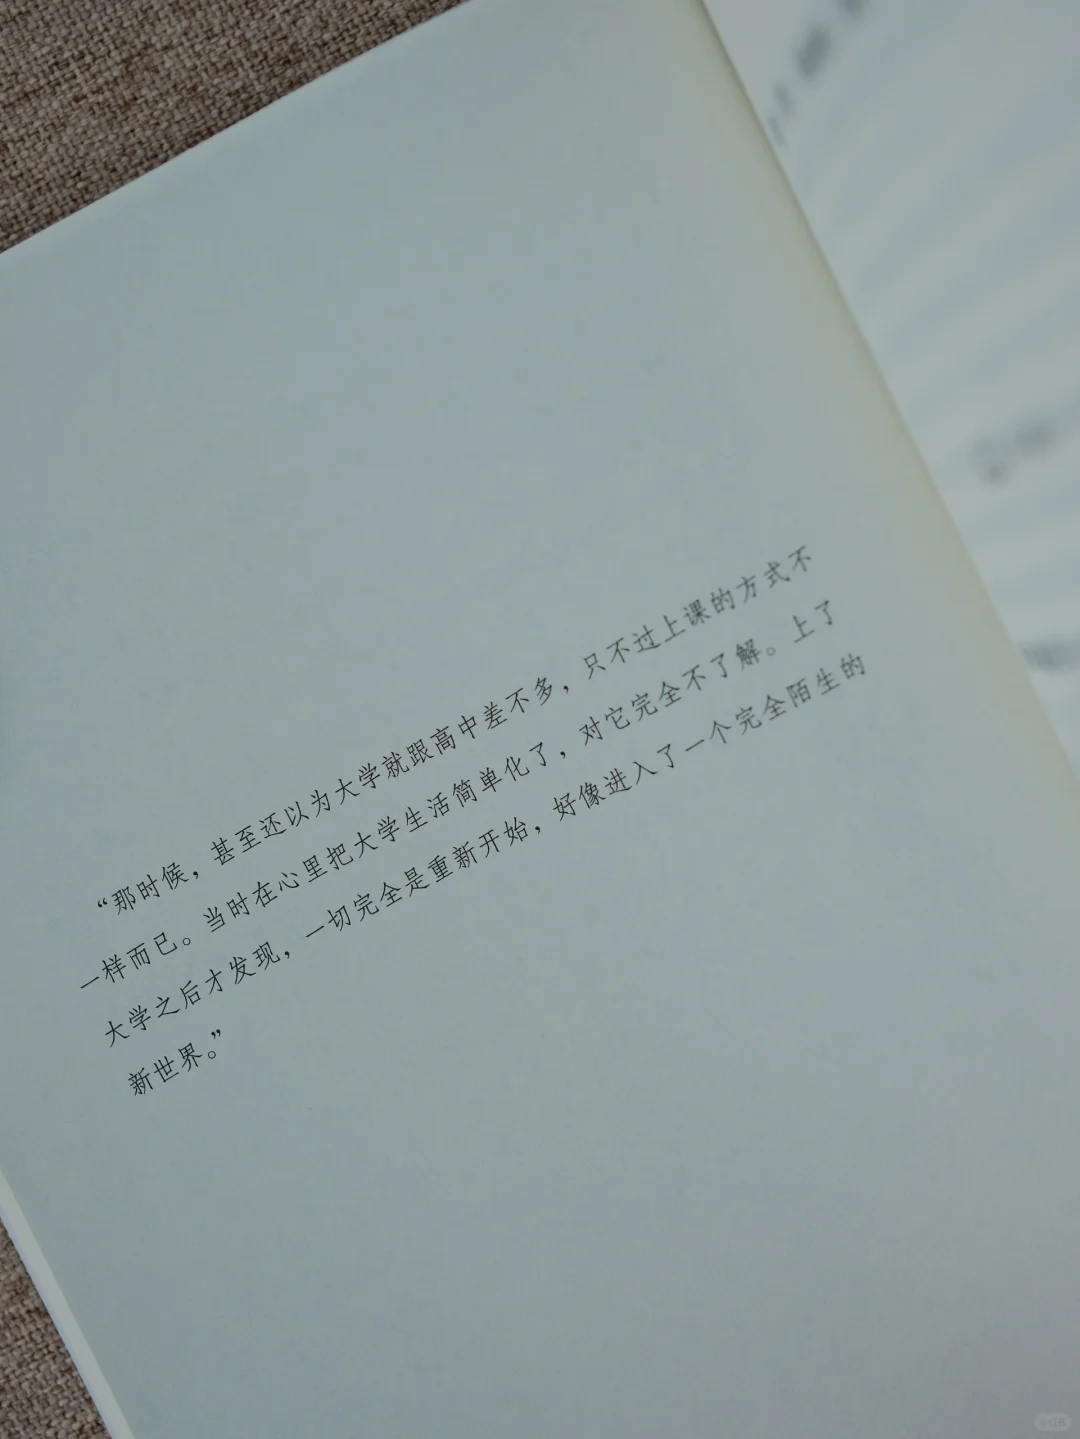 “那时候，甚至还以为大学就跟高中差不多，只不过上课的方式不
一样而已。当时在心里把大学生活简单化了，对它完全不了解。上了
大学之后才发现，一切完全是重新开始，好像进入了一个完全陌生的
新世界。”